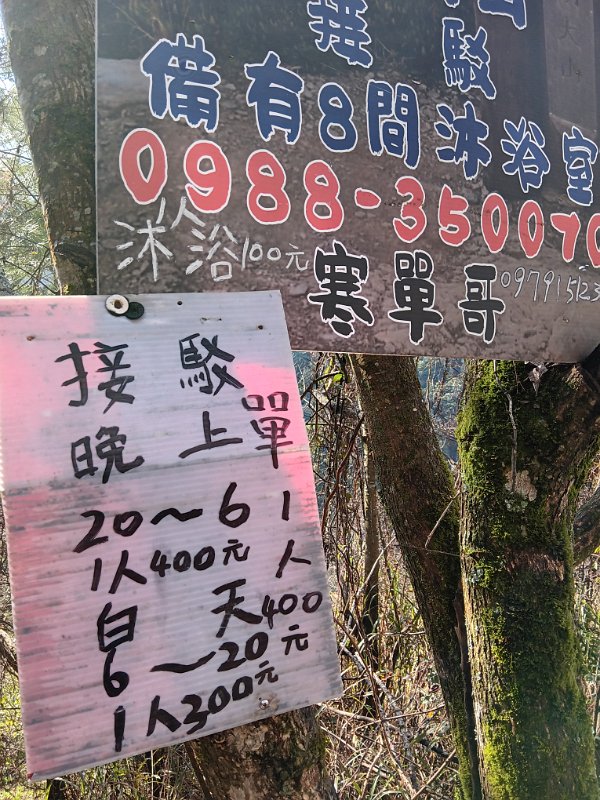 接駁
備有8間沐浴室
0988-350070
沐浴1人100元
寒單哥
097915123
接駁
晚上
20～6
1人400元
白天
6～20
1人300元
單1人400元